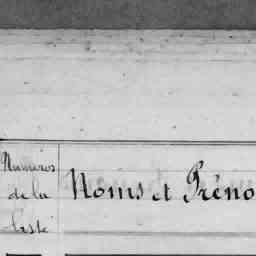 Numéros
de la
liste
Noms et Préno